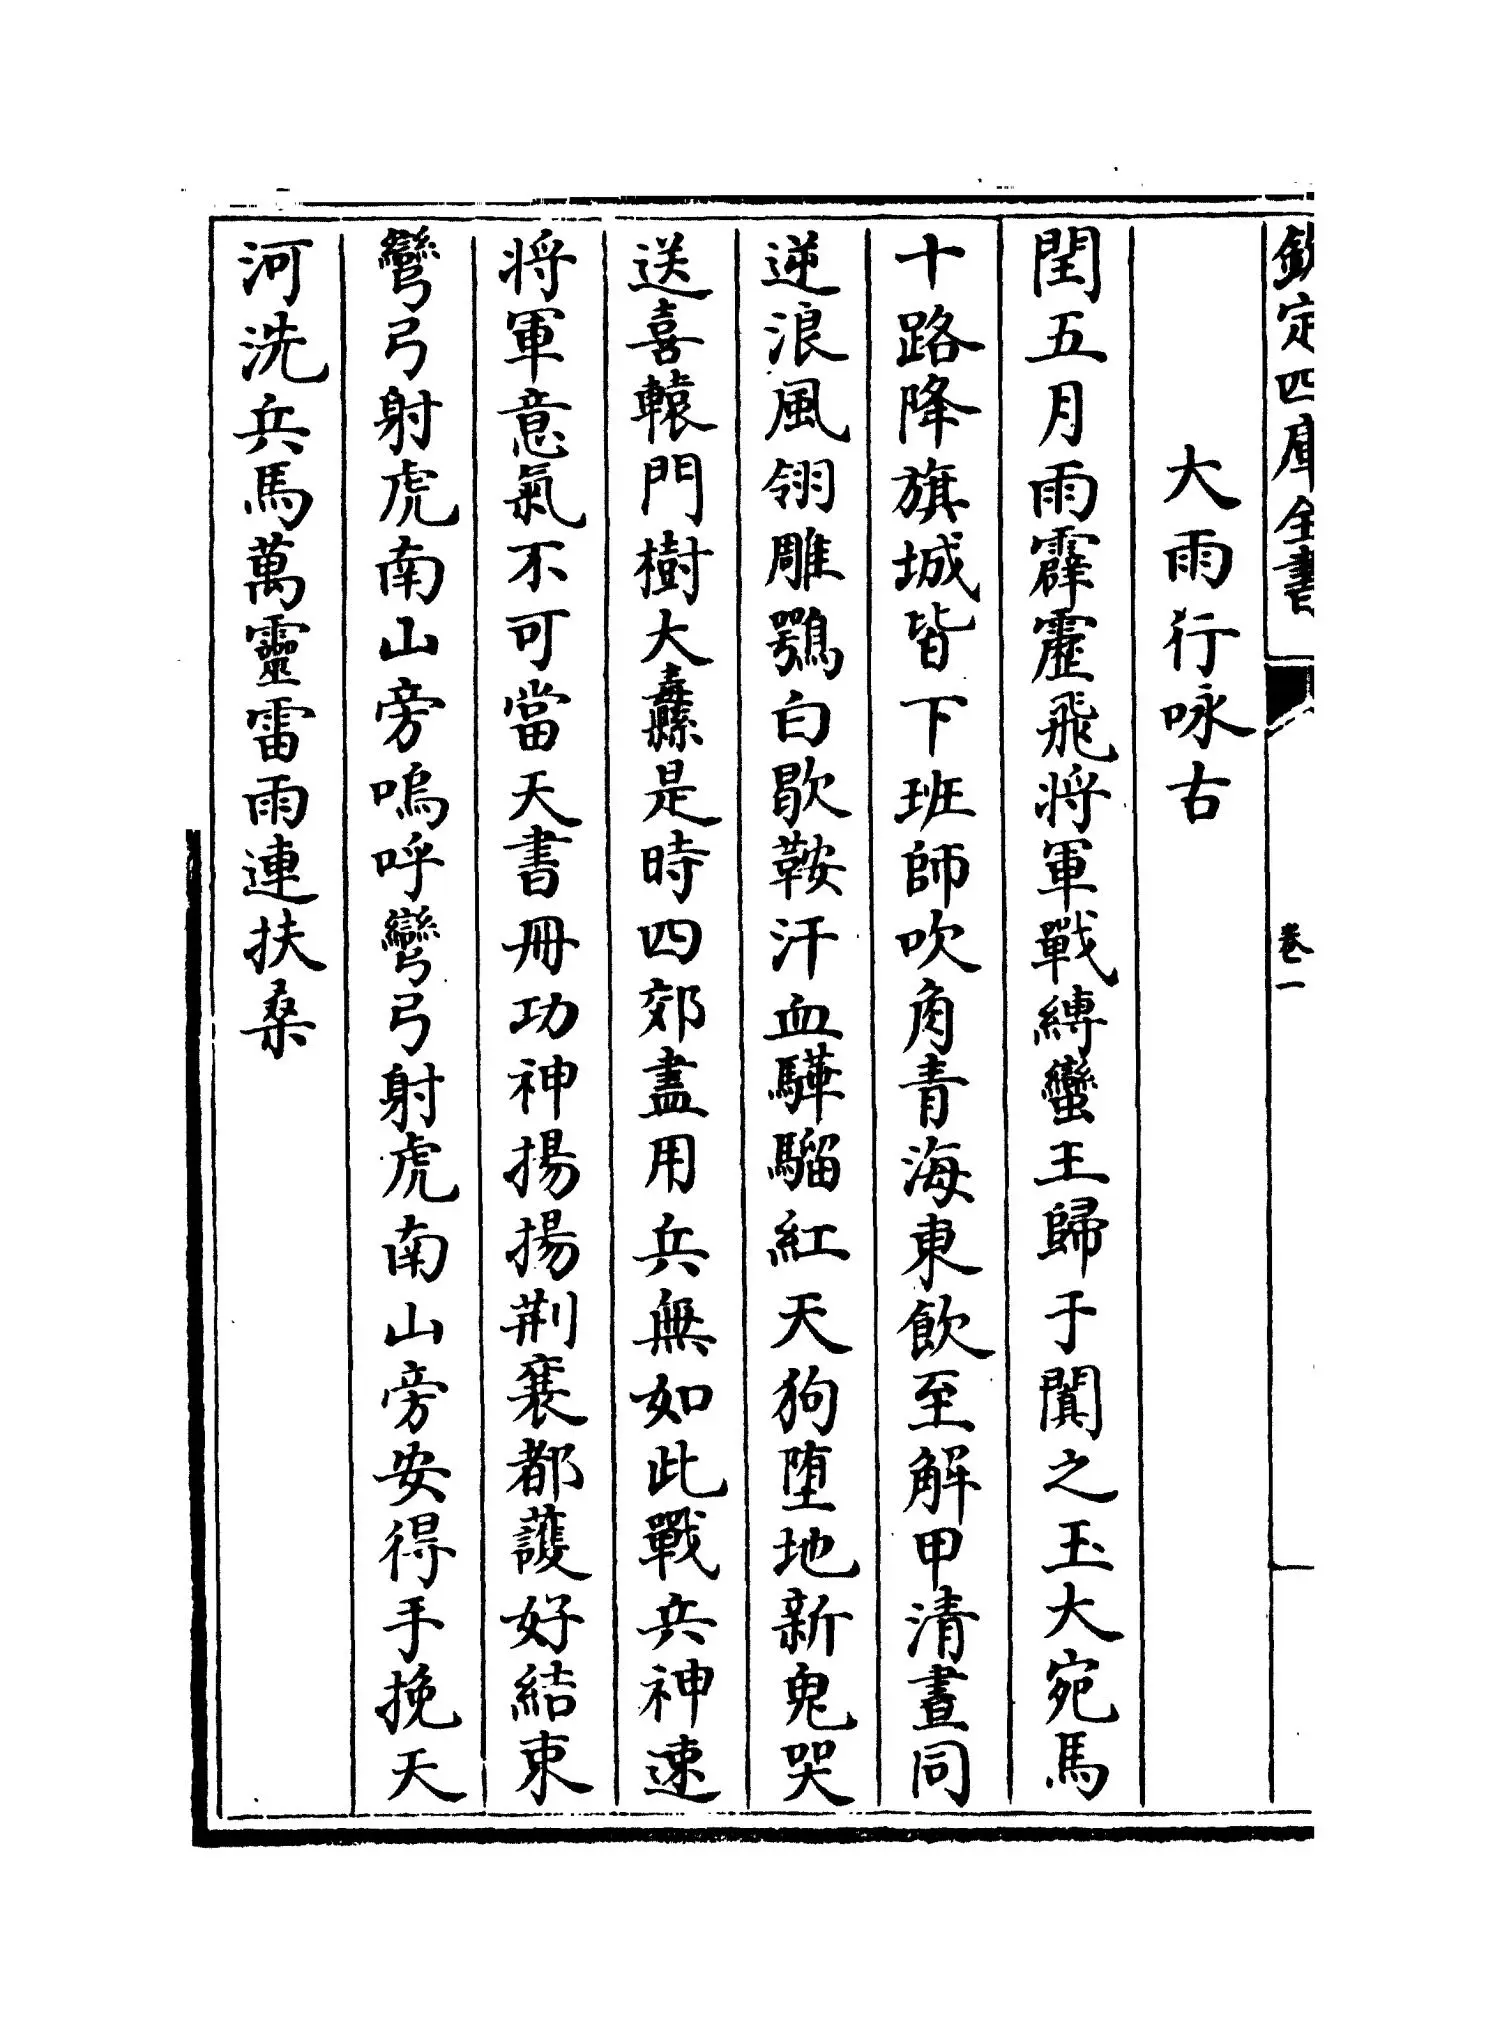 欽定四庫全書
卷一
大雨行咏古
閏五月雨霹靂飛將軍戰縛蠻王歸于闐之玉大宛馬
十路降旗城皆下班師吹角青海東飲至解甲清晝同
逆浪風翎雕鶚白歇鞍汗血驊騮紅天狗墮地新鬼哭
送喜轅門樹大纛是時四郊盡用兵無如此戰兵神速
將軍意氣不可當天書冊功神揚揚荆襄都護好結束
彎弓射虎南山旁嗚呼彎弓射虎南山旁安得手挽天
河洗兵馬萬靈雷雨連扶桑